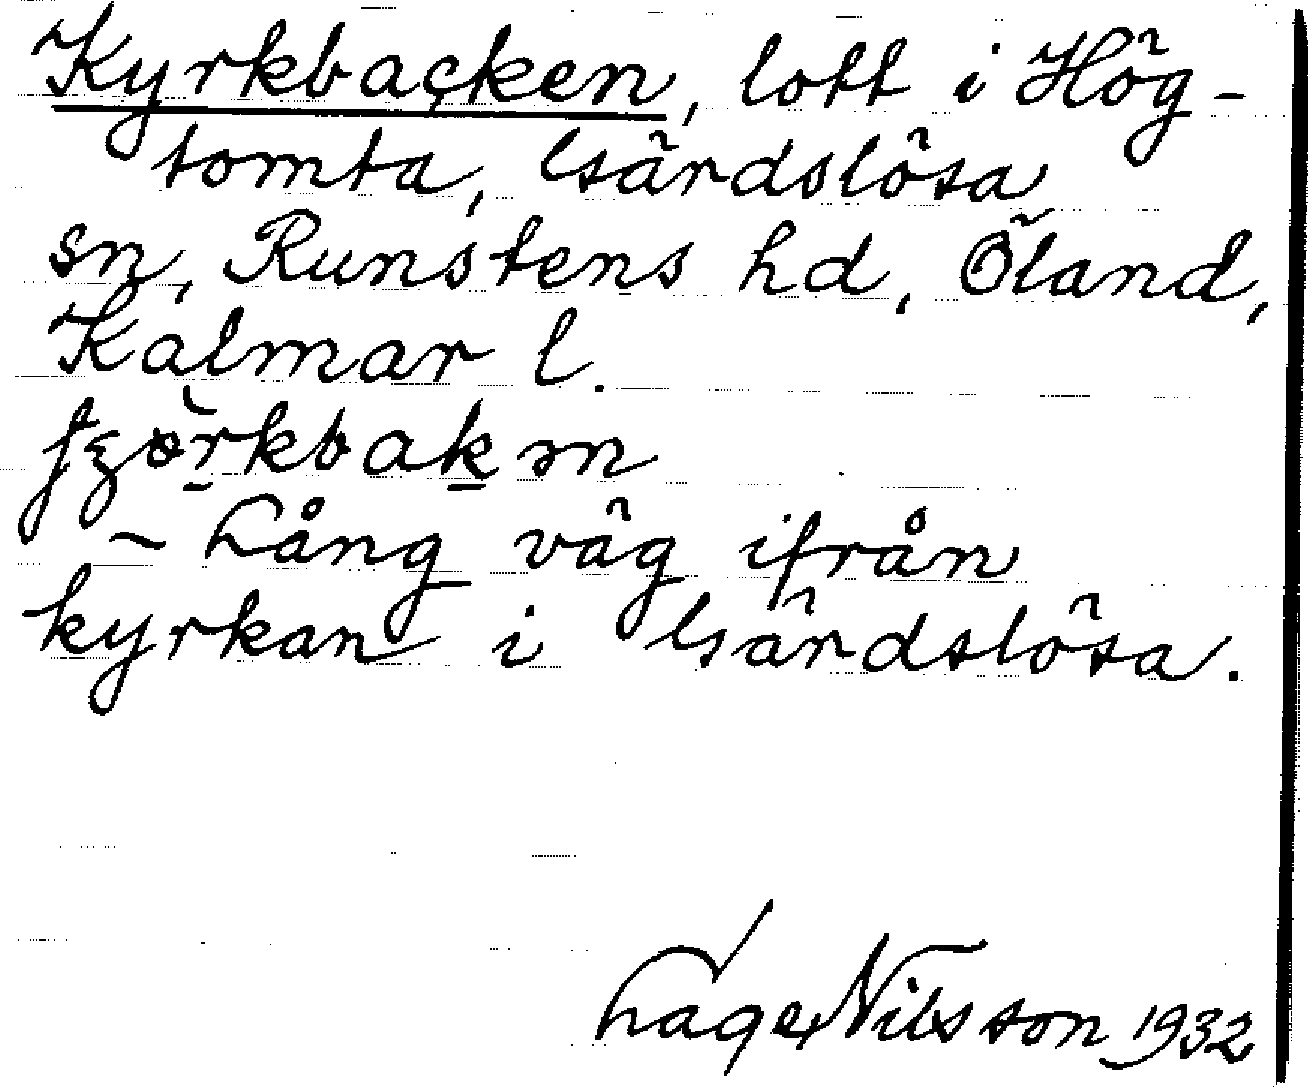 Kyrkbacken, lott i Hög-
tomta, Gärdslösa
sn, Runstens hd, Öland,
Kalmar l.
– Lång väg ifrån
kyrkan i Gärdslösa.
Lage Nilsson 1932